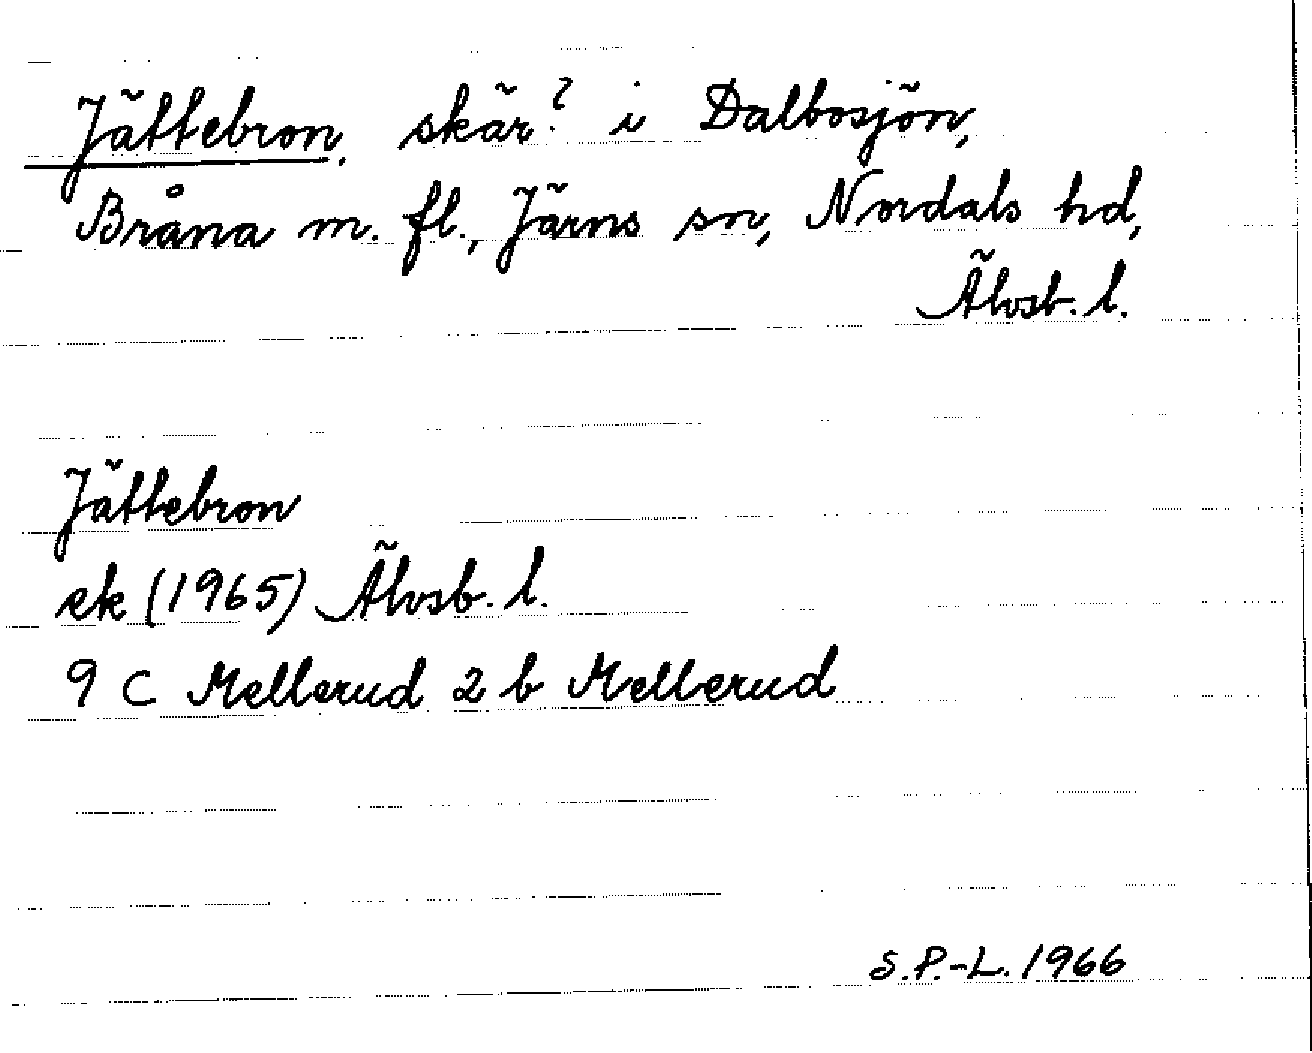 Jättebron, skär? i Dalbosjön,
Bråna m. fl., Järns sn, Nordals hd,
Älvsb. l.
Jättebron
ek (1965) Älvsb. l.
9 C Mellerud 2 b Mellerud
S.P.-L. 1966